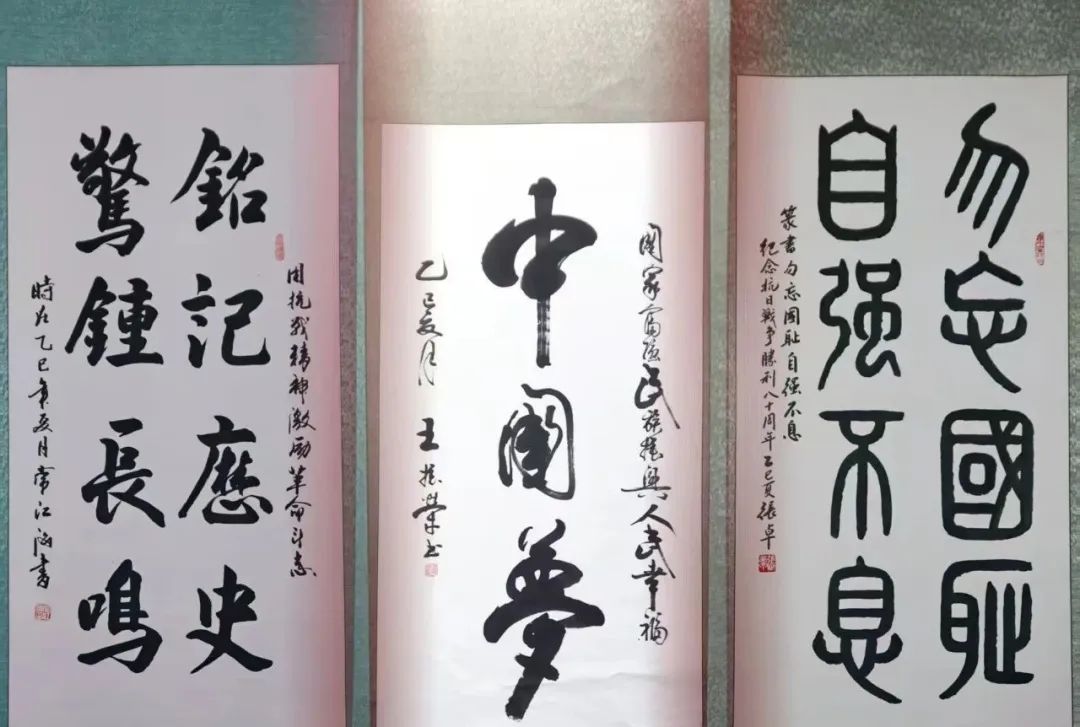 勿忘國耻
自强不息
篆書勿忘國耻自强不息
紀念抗日戰争勝利八十周年乙巳夏張卓
國家富强民族振興人民幸福
中國夢
乙巳夏月 王振榮书
用抗战精神激励革命斗志
銘記歷史
驚鍾長鳴
時在乙巳年夏月常江書